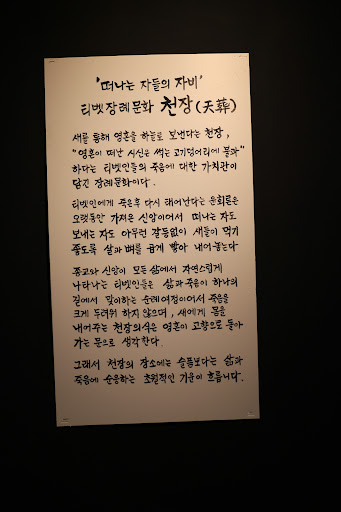 '떠나는 자들의 자비'
티벳장례문화 천장(天葬)
새를 통해 영혼을 하늘로 보낸다는 천장,
"영혼이 떠난 시신은 썩는 고기덩어리에 불과"
하다는 티벳인들의 죽음에 대한 가치관이
담긴 장례문화이다.
티벳인에게 죽은후 다시 태어난다는 윤회론은
오랫동안 가져온 신앙이어서 떠나는 자도
보내는 자도 아무런 갈등없이 새들이 먹기
좋도록 살과 뼈를 곱게 빻아 내어놓는다
종교와 신앙이 모든 삶에서 자연스럽게
나타나는 티벳인들은 삶과 죽음이 하나의
길에서 맞이하는 순례여정이어서 죽음을
크게 두려워 하지 않으며, 새에게 몸을
내어주는 천장의식은 영혼이 고향으로 돌아
가는 문으로 생각한다.
그래서 천장의 장소에는 슬픔보다는 삶과
죽음에 순응하는 초월적인 기운이 흐릅니다.